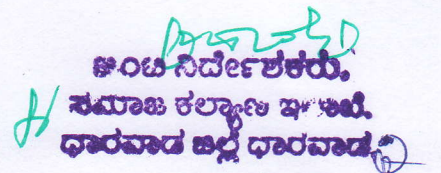 ಜಂಟಿ ನಿರ್ದೇಶಕರು,
ಸಮಾಜ ಕಲ್ಯಾಣ ಇಲಾಖೆ.
ಧಾರವಾಡ ಜಿಲ್ಲೆ ಧಾರವಾಡ.